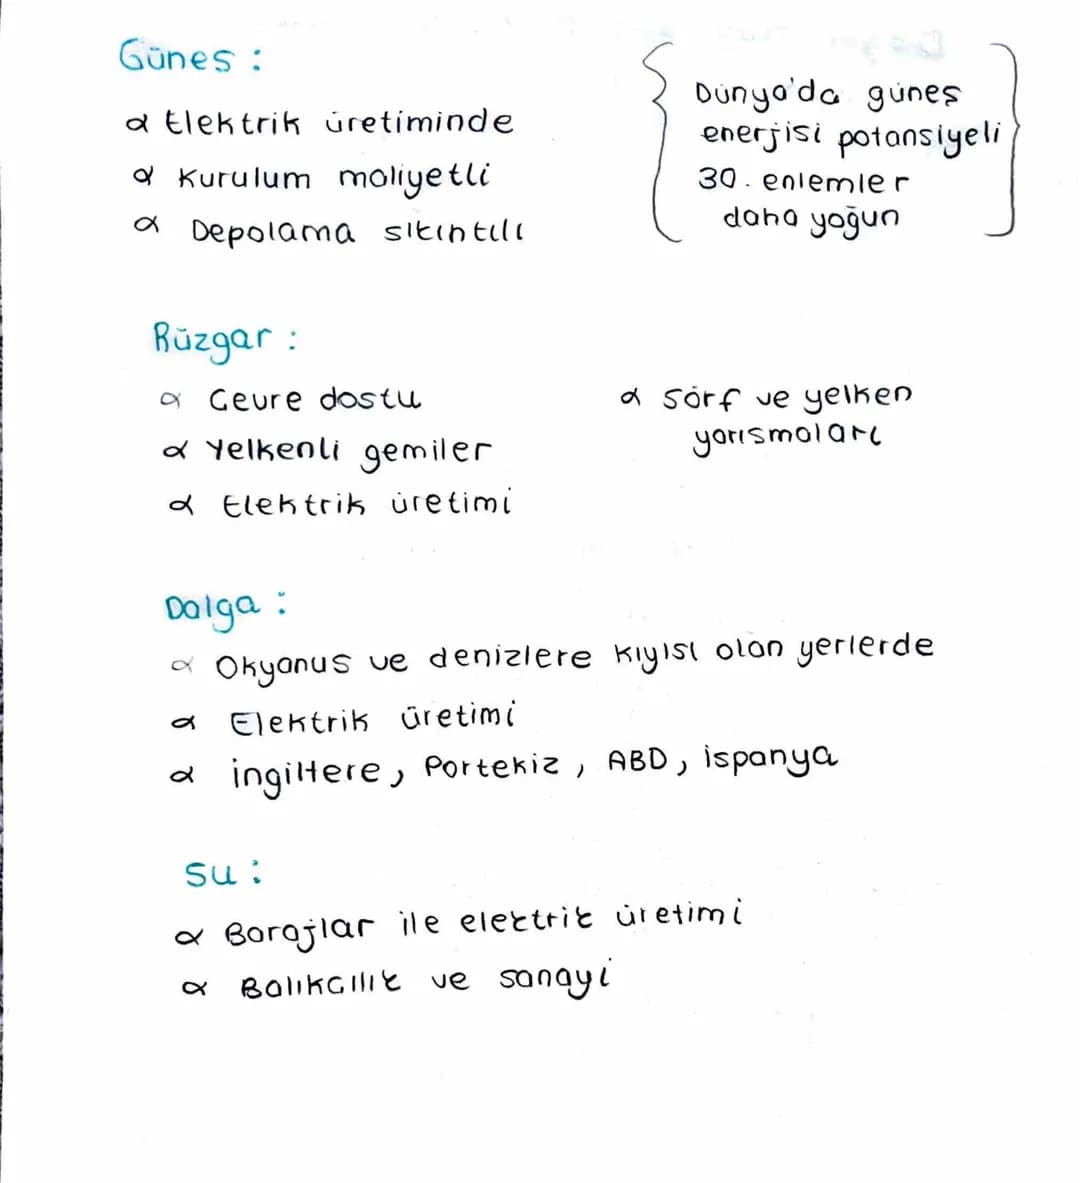 Güneş :
α Elektrik üretiminde
α Kurulum maliyetli
α Depolama sıkıntılı
Dünya'da güneş
enerjisi potansiyeli
30. enlemler
daha yoğun
Rüzgar :
α Çevre dostu
α Yelkenli gemiler
α Elektrik üretimi
α Sörf ve yelken
yarısmaları
Dalga :
α Okyanus ve denizlere kıyısı olan yerlerde
α Elektrik üretimi
α ingiltere, Portekiz, ABD, ispanya
Su :
α Barajlar ile elektrik üretimi
α Balıkcılık ve sanayi